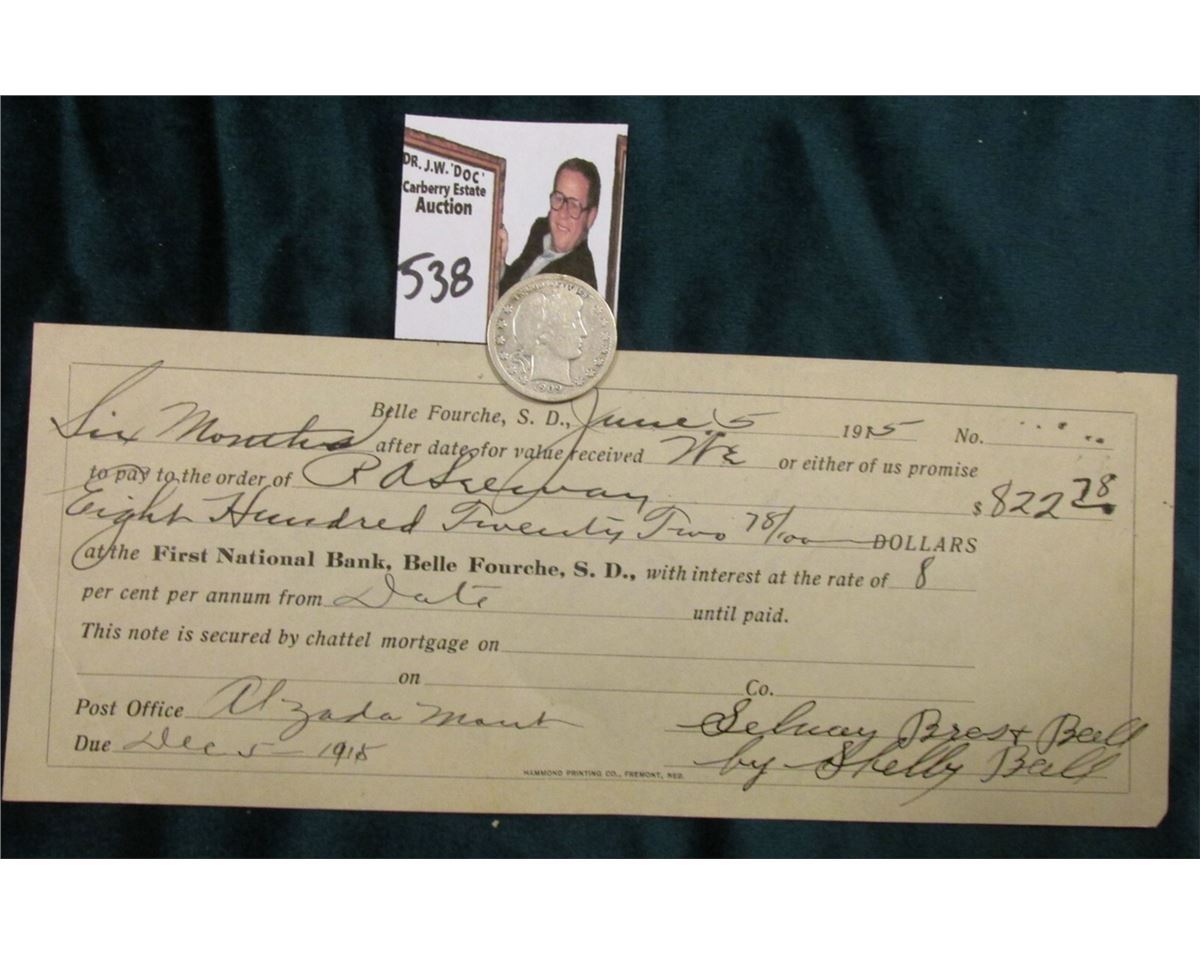 DR. J.W. 'DOC'
Carberry Estate
Auction
538
1909
Belle Fourche, S. D., June 5 1915 No.
Six Months after date, for value received We or either of us promise
to pay to the order of R A Selway $822 78
Eight Hundred Twenty Two 78/100 DOLLARS
at the First National Bank, Belle Fourche, S. D., with interest at the rate of 8
per cent per annum from Date until paid.
This note is secured by chattel mortgage on
on Co.
Post Office Alzada Mont
Selway Bros & Ball
Due Dec 5 - 1915
by Shelby Ball
HAMMOND PRINTING CO., FREMONT, NEB.